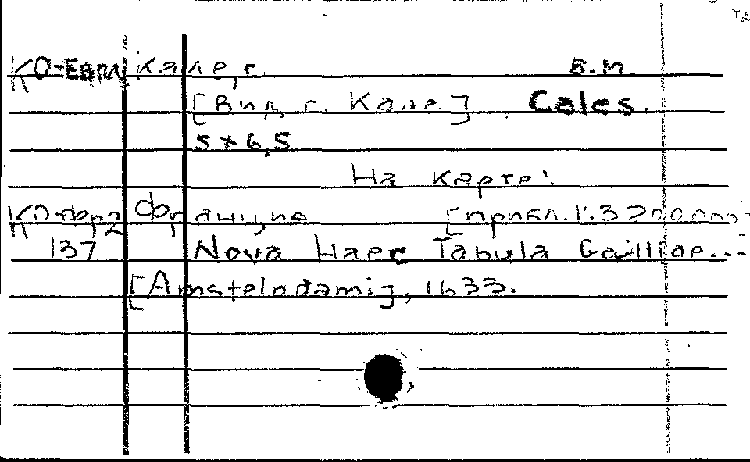 КО-Евра Кале, г. Б.М.
[Вид г. Кале]. Cales.
5×6,5
На карте:
КО-Фра Франция [прибл. 1:3200000]
137 Nova Haec Tabula Galliae...
[Amstelodami], 1633.